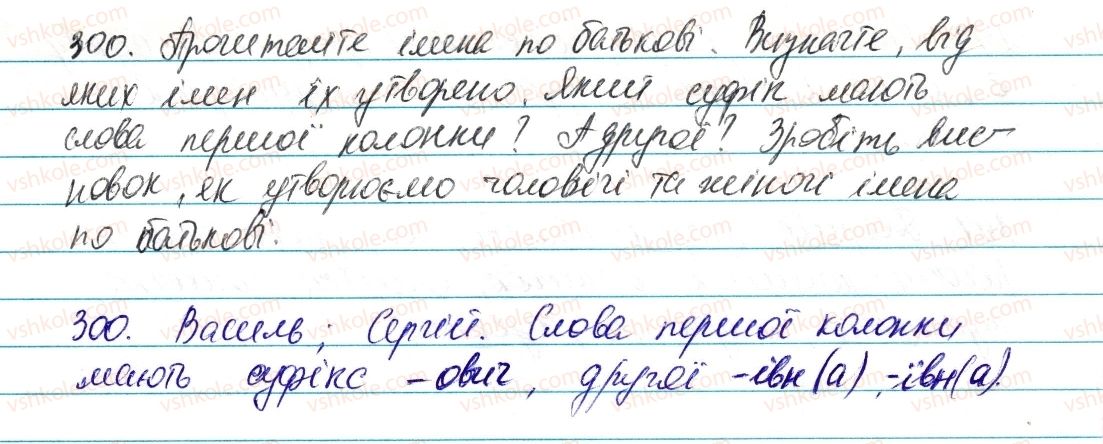 300. Прочитайте імена по батькові. Визначте, від
яких імен їх утворено. Який суфікс мають
слова першої колонки? А другої? Зробіть вис-
новок, як утворюємо чоловічі та жіночі імена
по батькові.
300. Василь; Сергій. Слова першої колонки
мають суфікс -ович, другої -івн(а), -ївн(а).